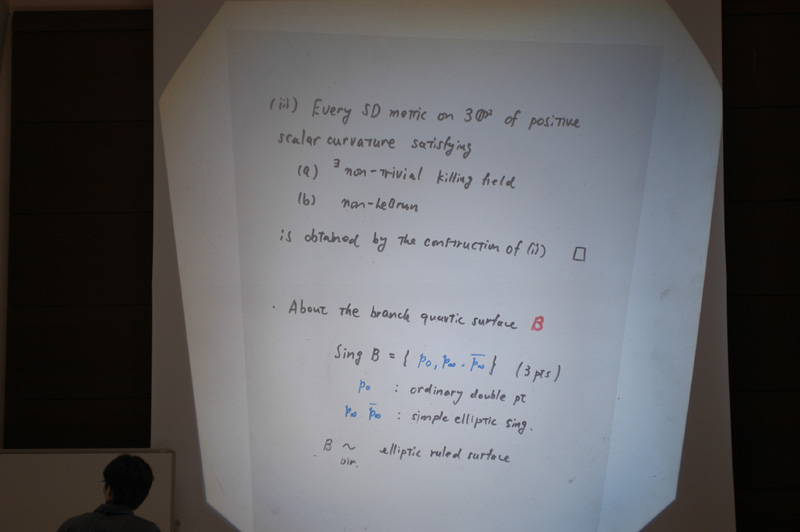 (iii) Every SD metric on 3ℂℙ² of positive
scalar curvature satisfying
(a) ∃ non-trivial killing field
(b) non-LeBrun
is obtained by the construction of (ii) □
· About the branch quartic surface B
Sing B = { p₀, p∞, p̄∞ } (3 pts)
p₀ : ordinary double pt
p∞ p̄∞ : simple elliptic sing.
B ~ elliptic ruled surface
bir.